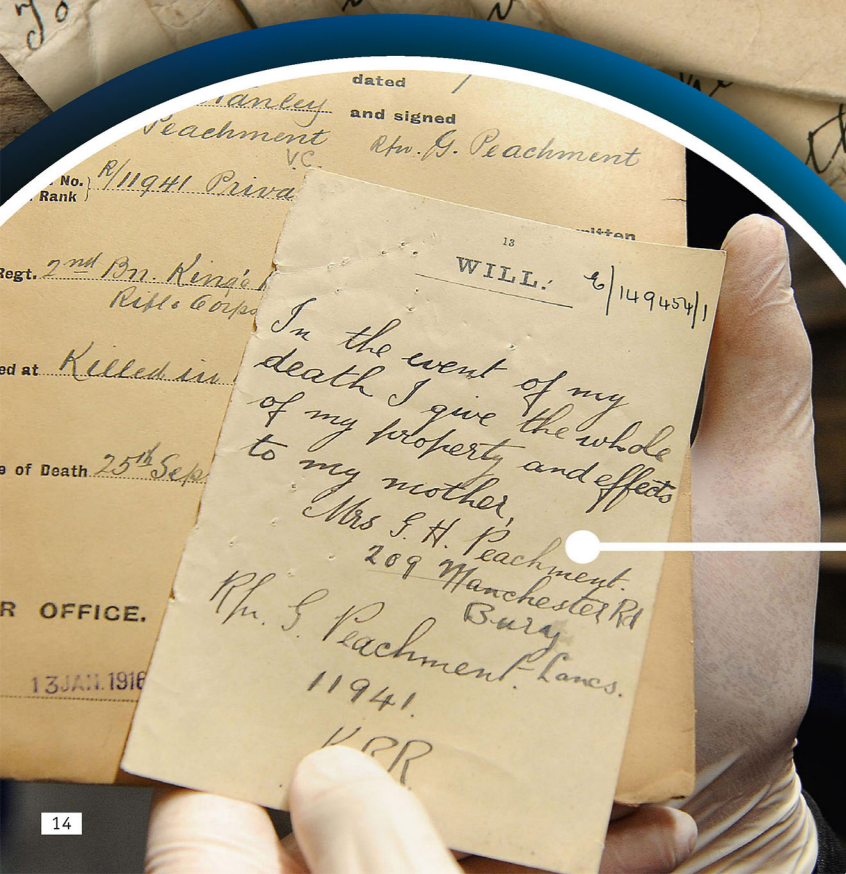 dated
and signed
Rfn. G. Peachment
Peachment
V.C.
No.
Rank
R/11941 Priva
Regt. 2nd Bn. King's
Rifle Corps
ed at Killed in
e of Death 25th Sep
R OFFICE.
13 JAN. 1916
13
WILL.
E/149454/1
In the event of my
death I give the whole
of my property and effects
to my mother,
Mrs G. H. Peachment.
209 Manchester Rd
Bury
Lancs.
Rfn. G Peachment
11941.
KRR
14